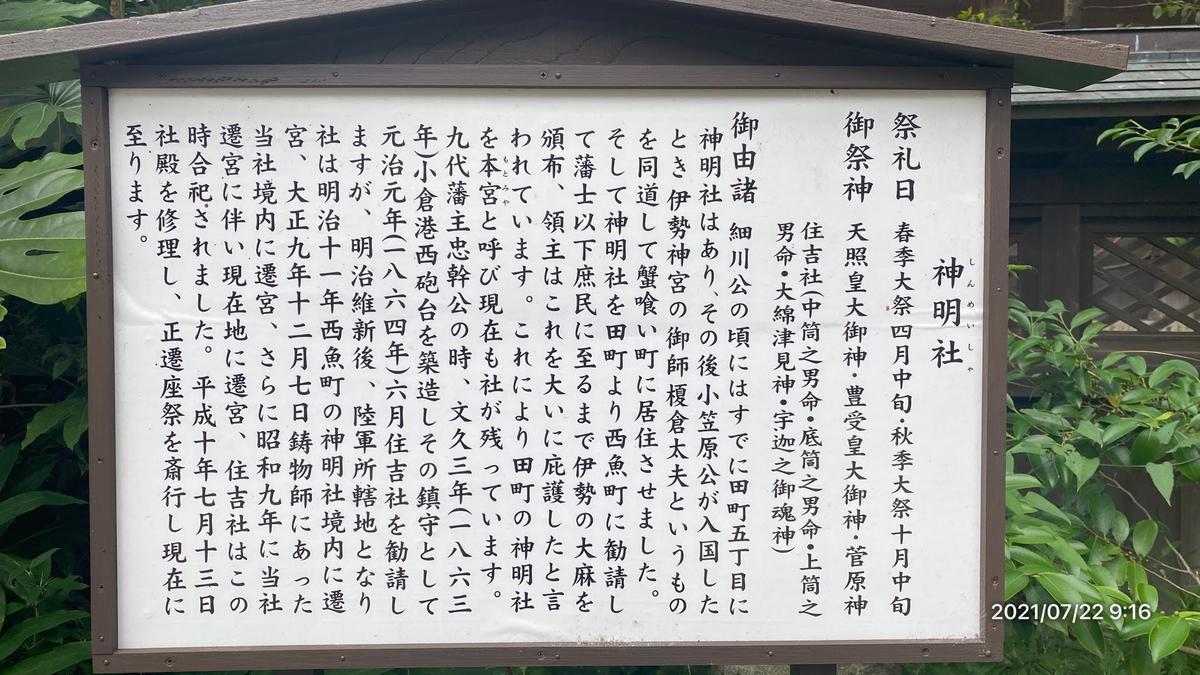 神明社
しんめいしゃ
祭礼日　春季大祭四月中旬・秋季大祭十月中旬
御祭神　天照皇大御神・豊受皇大御神・菅原神
住吉社(中筒之男命・底筒之男命・上筒之
男命・大綿津見神・宇迦之御魂神)
御由諸　細川公の頃にはすでに田町五丁目に
神明社はあり、その後小笠原公が入国した
とき伊勢神宮の御師榎倉太夫というもの
を同道して蟹喰い町に居住させました。
そして神明社を田町より西魚町に勧請し
て藩士以下庶民に至るまで伊勢の大麻を
頒布、領主はこれを大いに庇護したと言
われています。これにより田町の神明社
を本宮と呼び現在も社が残っています。
もとみや
九代藩主忠幹公の時、文久三年(一八六三
年)小倉港西砲台を築造しその鎮守として
元治元年(一八六四年)六月住吉社を勧請し
ますが、明治維新後、陸軍所轄地となり
社は明治十一年西魚町の神明社境内に遷
宮、大正九年十二月七日鋳物師にあった
当社境内に遷宮、さらに昭和九年に当社
遷宮に伴い現在地に遷宮、住吉社はこの
時合祀されました。平成十年七月十三日
社殿を修理し、正遷座祭を斎行し現在に
至ります。
2021/07/22 9:16